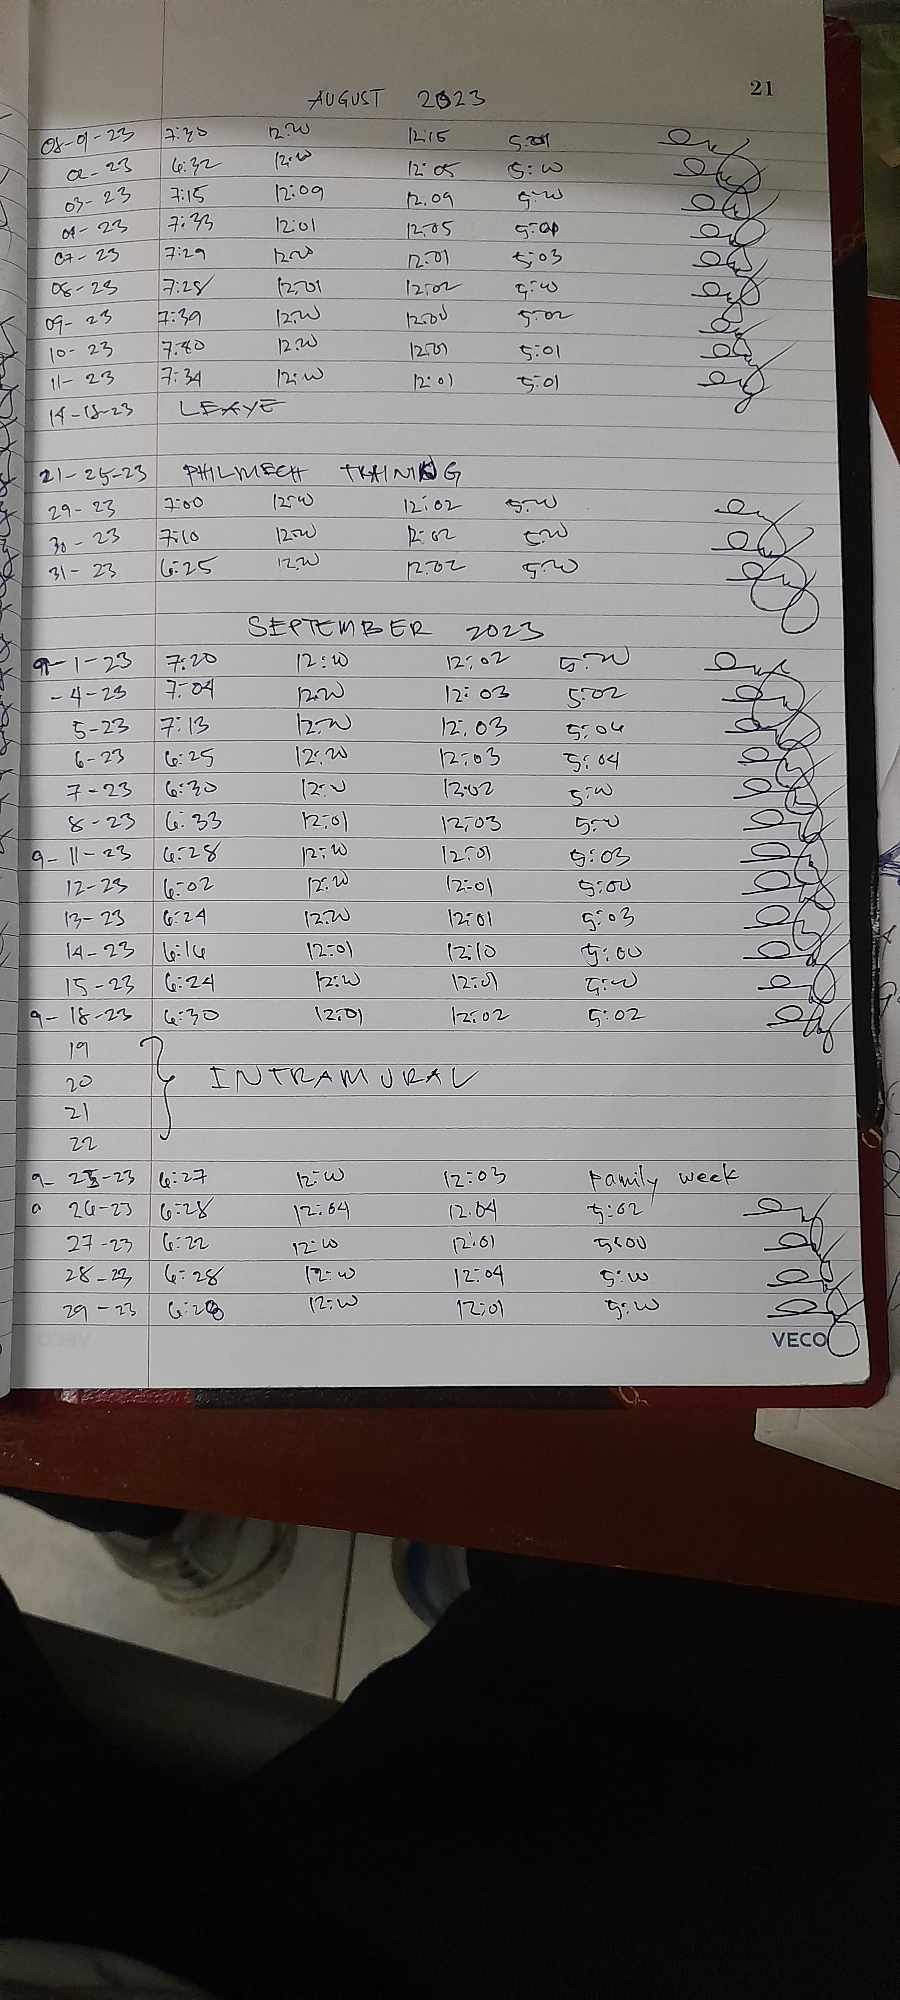 21
AUGUST 2023
08-01-23 7:30 12:00 12:15 5:01
02-23 6:32 12:00 12:05 5:00
03-23 7:15 12:09 12:09 5:00
04-23 7:33 12:01 12:05 5:00
07-23 7:29 12:00 12:01 5:03
08-23 7:28 12:01 12:02 5:00
09-23 7:39 12:00 12:00 5:02
10-23 7:30 12:00 12:01 5:01
11-23 7:34 12:00 12:01 5:01
14-18-23 LEAVE
21-25-23 PHILMECH TRAINING
29-23 7:00 12:00 12:02 5:00
30-23 7:10 12:00 12:02 5:00
31-23 6:25 12:00 12:02 5:00
SEPTEMBER 2023
9-1-23 7:20 12:00 12:02 5:00
-4-23 7:04 12:00 12:03 5:02
5-23 7:13 12:00 12:03 5:06
6-23 6:25 12:00 12:03 5:04
7-23 6:30 12:00 12:02 5:00
8-23 6:33 12:01 12:03 5:00
9-11-23 6:28 12:00 12:01 5:03
12-23 6:02 12:00 12:01 5:00
13-23 6:24 12:00 12:01 5:03
14-23 6:16 12:01 12:10 5:00
15-23 6:24 12:00 12:01 5:00
9-18-23 6:30 12:01 12:02 5:02
19
20 INTRAMURAL
21
22
9-25-23 6:27 12:00 12:03 Family week
9 26-23 6:28 12:04 12:04 5:02
27-23 6:22 12:00 12:01 5:00
28-23 6:28 12:00 12:04 5:00
29-23 6:28 12:00 12:01 5:00
VECO